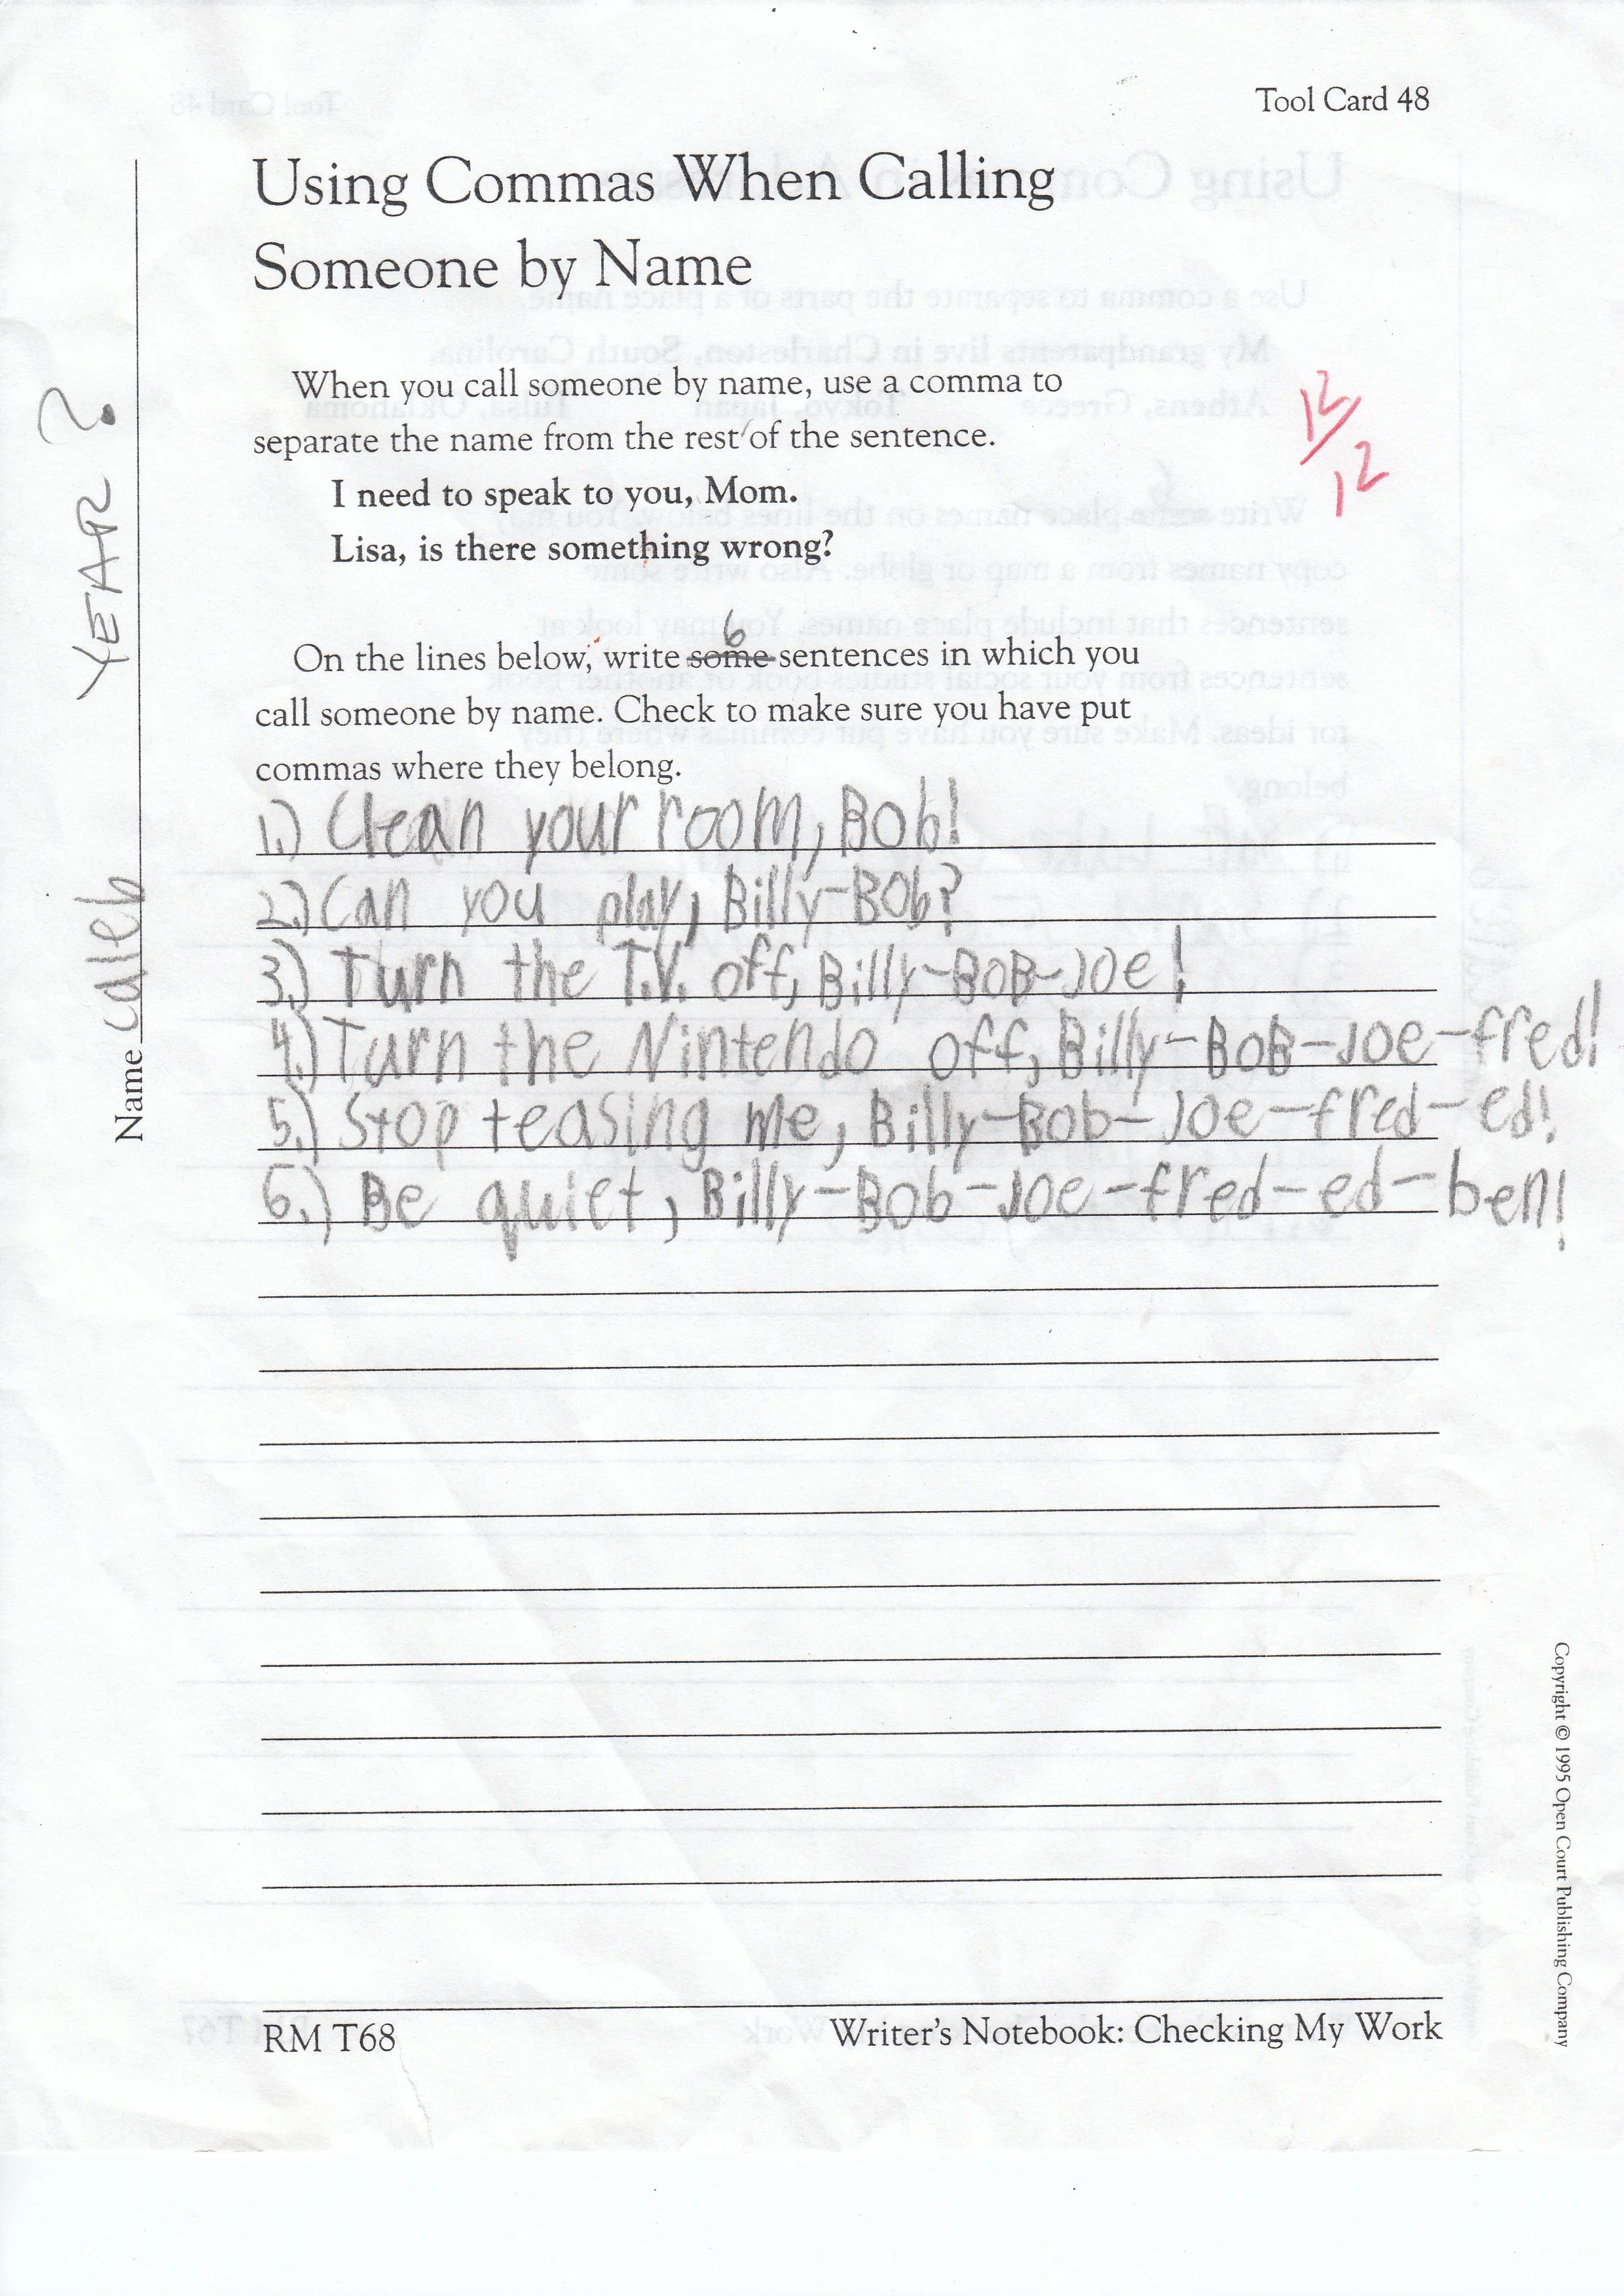 Tool Card 48
Using Commas When Calling
Someone by Name
When you call someone by name, use a comma to
separate the name from the rest of the sentence.
I need to speak to you, Mom.
Lisa, is there something wrong?
12/12
On the lines below, write some 6 sentences in which you
call someone by name. Check to make sure you have put
commas where they belong.
1.) Clean your room, Bob!
2.) Can you play, Billy-Bob?
3.) Turn the T.V. off, Billy-BoB-Joe!
4.) Turn the Nintendo off, Billy-BoB-Joe-fred!
5.) Stop teasing me, Billy-Bob-Joe-fred-ed!
6.) Be quiet, Billy-Bob-Joe-fred-ed-ben!
RM T68
Writer's Notebook: Checking My Work
Name Caleb
YEAR ?
Copyright © 1995 Open Court Publishing Company